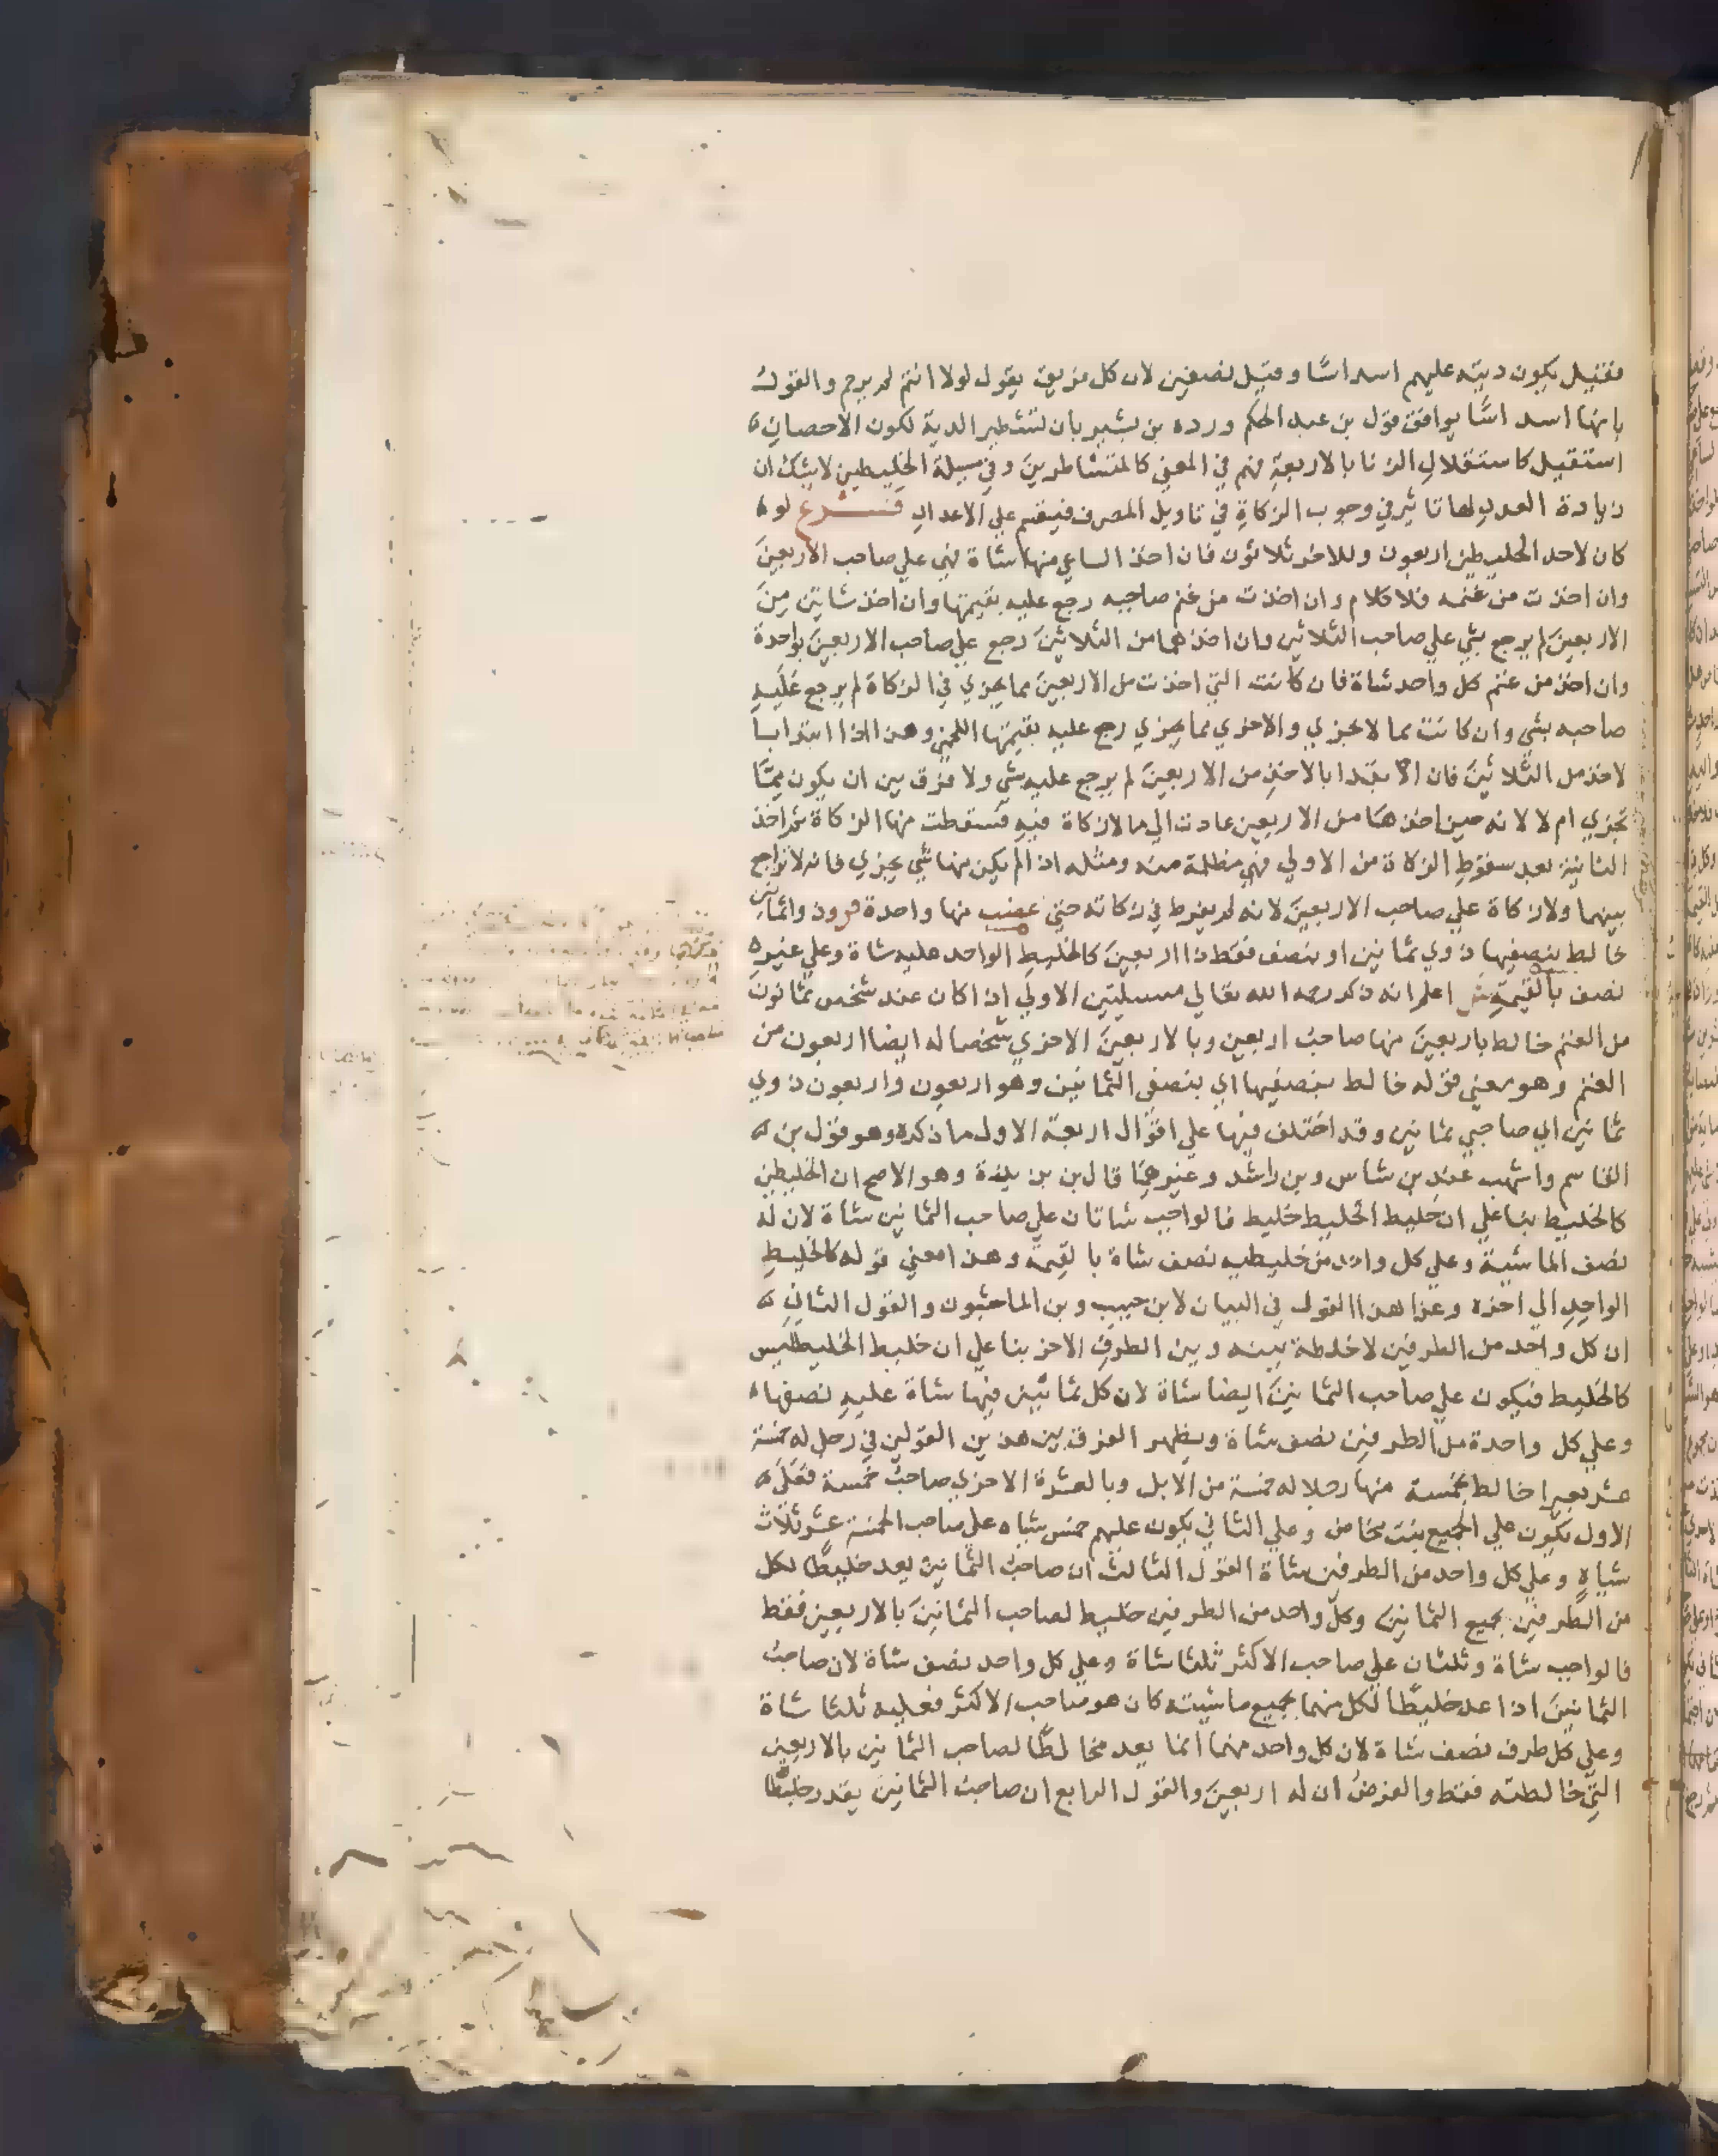 فقيل يكون ديته عليهم اسداسًا وقيل نصفين لان كل فريق يقول لولا انتم لم يرجم والقول
بانها اسداسًا يوافق قول بن عبد الحكم ورده بن بشير بان لتشطير الدية لكون الاحصان
استقبل كاستقلال الزنا بالاربعة فهم في المعني كالمتشاطرين وفي مسيلة الخليطين لا يشك ان
زيادة العدد لها تاثير في وجوب الزكاة في تاويل المصرف فيقسم علي الاعداد فرع لو
كان لاحد الخليطين اربعون وللاخر ثلاثون فان اخذ الساعي منها شاة فهي علي صاحب الاربعين
وان اخذت من غنمه فلا كلام وان اخذت من غنم صاحبه رجع عليه بقيمتها وان اخذ شاتين من
الاربعين لم يرجع بشي علي صاحب الثلاثين وان اخذهما من الثلاثين رجع علي صاحب الاربعين بواحدة
وان اخذ من غنم كل واحد شاة فان كانت التي اخذت من الاربعين مما يجزي في الزكاة لم يرجع عليه
صاحبه بشي وان كانت مما لا يجزي والاخري مما يجزي رجع عليه بقيمتها اللخمي وهذا اذا ابتدا با
لاخذ من الثلاثين فان ابتدا بالاخذ من الاربعين لم يرجع عليه بشي ولا فرق بين ان يكون مما
تجزي ام لا لانه حين اخذها من الاربعين عادت الي ما لا زكاة فيه فسقطت منها الزكاة ثم اخذ
الثانية بعد سقوط الزكاة من الاولي فهي مظلمة منه ومثله اذا لم يكن منها شي يجزي فانه لا تراجع
بينهما ولا زكاة علي صاحب الاربعين لانه لم يفرط في زكاته حتي غصب منها واحدة
خالط بنصفيها ذوي ثمانين او بنصف فقط ذا اربعين كالخليط الواحد عليه شاة وعلي غيره
نصف بالقيمة ش اعلم انه ذكر رحمه الله تعالي مسيلتين الاولي اذا كان عند شخص ثمانون
من الغنم خالط باربعين منها صاحب اربعين وبالاربعين الاخري شخصا له ايضا اربعون من
الغنم وهو معني قوله خالط بنصفيها اي بنصفي الثمانين وهو اربعون واربعون ذوي
ثمانين اي صاحبي ثمانين وقد اختلف فيها علي اقوال اربعة الاول ما ذكره وهو قول بن
القاسم واشهب عند بن شاس وبن راشد وغيرهما قال بن بزيزة وهو الاصح ان الخليطين
كالخليط بنا علي ان خليط الخليط خليط فالواجب شاتان علي صاحب الثمانين شاة لان له
نصف الماشية وعلي كل واحد من خليطيه نصف شاة بالقيمة وهذا معني قوله كالخليط
الواحد الي اخره وعزا هذا القول في البيان لابن حبيب وبن الماجشون والقول الثاني
ان كل واحد من الطرفين لا خلطة بينه وبين الطرف الاخر بنا علي ان خليط الخليط ليس
كالخليط فيكون علي صاحب الثمانين ايضا شاة لان كل ثمانين فيها شاة عليه نصفها
وعلي كل واحدة من الطرفين نصف شاة ويظهر الفرق بين هذين القولين في رجل له خمسة
عشر بعيرا خالط بخمسة منها رجلا له خمسة من الابل وبالعشرة الاخري صاحب خمسة فعلي
الاول يكون علي الجميع بنت مخاض وعلي الثاني يكون عليهم خمس شياه علي صاحب الخمسة عشر ثلاث
شياه وعلي كل واحد من الطرفين شاة القول الثالث ان صاحب الثمانين يعد خليطًا لكل
من الطرفين بجميع الثمانين وكل واحد من الطرفين خليط لصاحب الثمانين بالاربعين فقط
فالواجب شاة وثلثان علي صاحب الاكثر ثلثا شاة وعلي كل واحد نصف شاة لان صاحب
الثمانين اذا عد خليطًا لكل منهما بجميع ماشيته كان هو صاحب الاكثر فعليه ثلثا شاة
وعلي كل طرف نصف شاة لان كل واحد منهما انما يعد مخالطًا لصاحب الثمانين بالاربعين
التي خالطته فقط والفرض ان له اربعين والقول الرابع ان صاحب الثمانين يقدر خليطًا